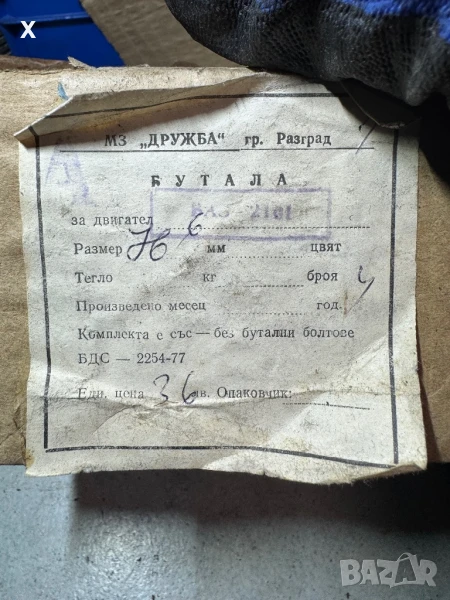 X
МЗ „ДРУЖБА“ гр. Разград
БУТАЛА
за двигател ВАЗ 2101 6
Размер мм цвят
Тегло кг броя 4
Произведено месец год.
Комплекта е със — без бутални болтове
БДС — 2254-77
Едн. цена 36 лв. Опаковчик:
BAZAR